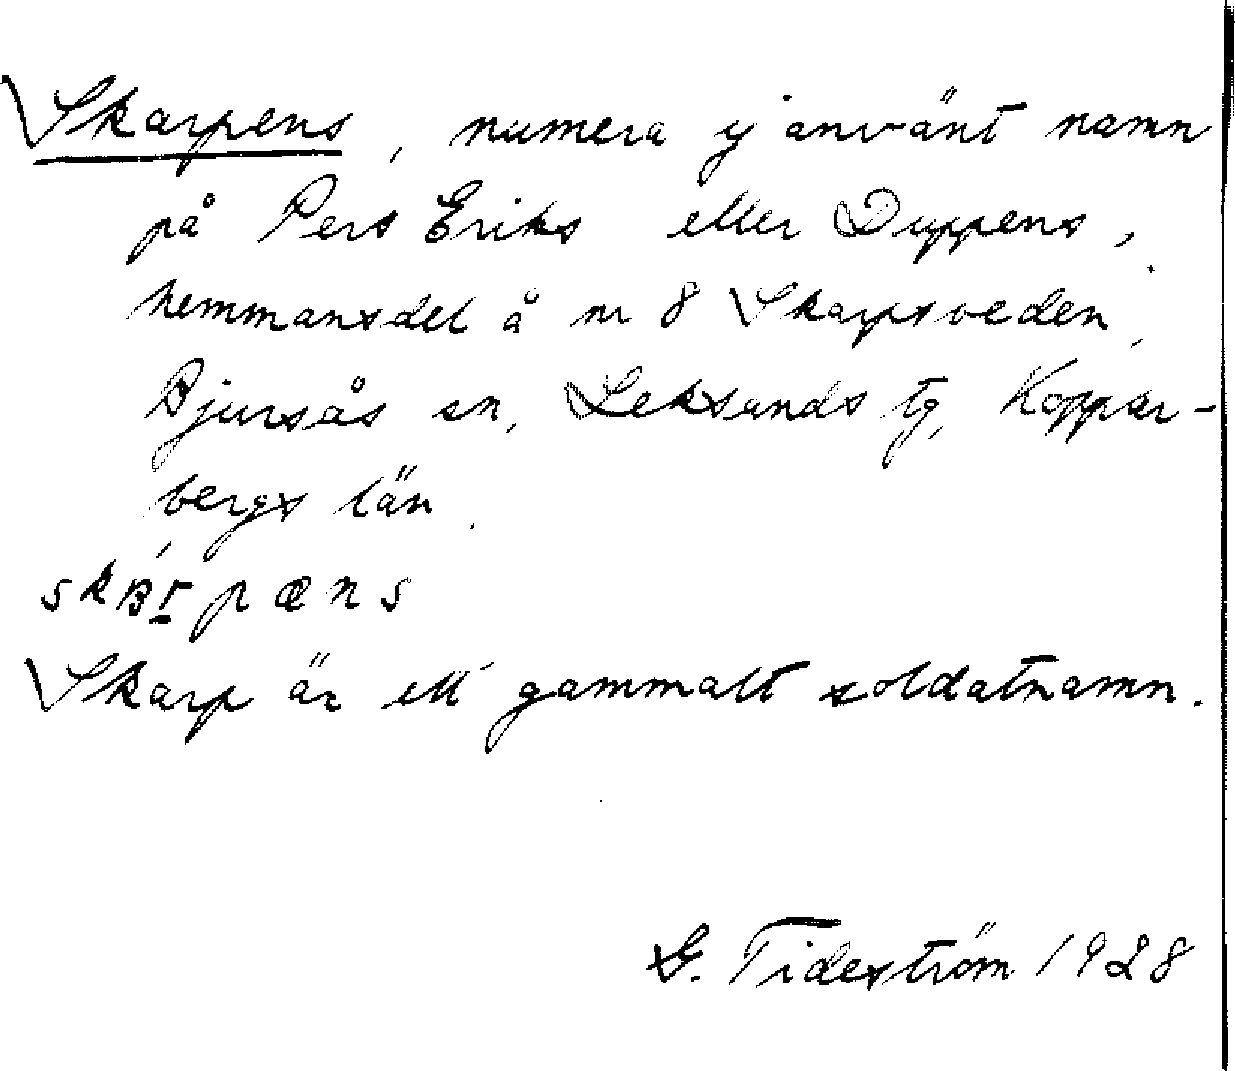 Skarpens, numera ej använt namn
på Pers Eriks eller Duppens,
hemmansdel å nr 8 Skarpsveden,
Bjursås sn, Leksands tg, Koppar-
bergs län.
skɐ́r̲pæns
Skarp är ett gammalt soldatnamn.
G. Tideström 1928